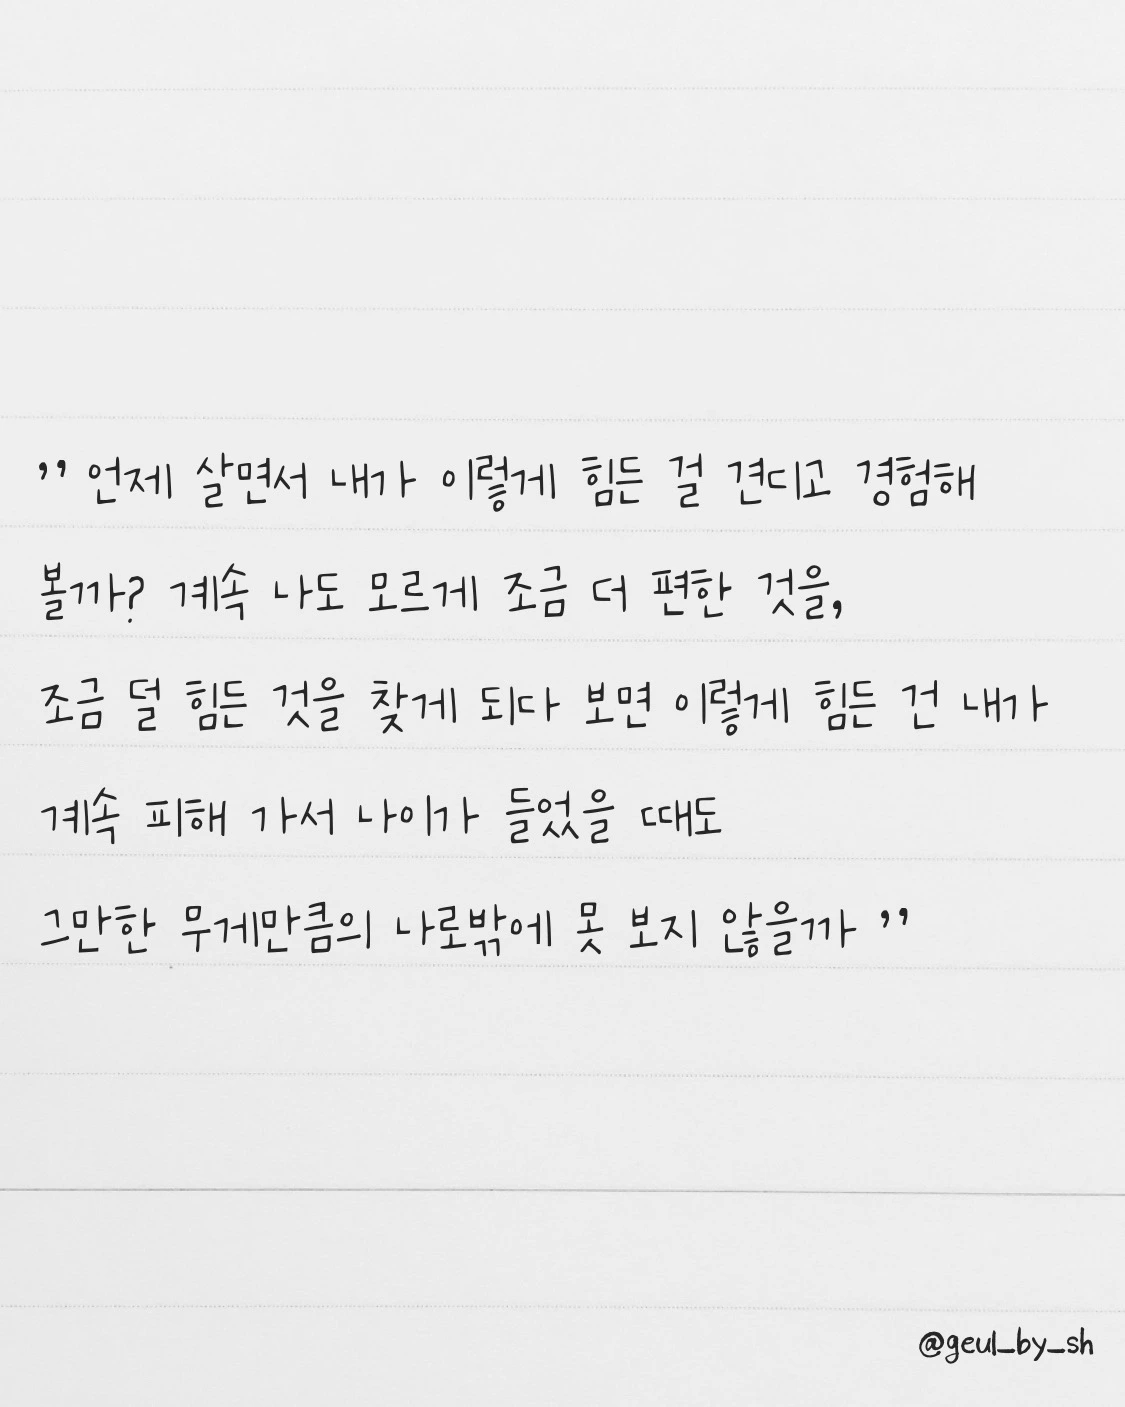 ’’ 언제 살면서 내가 이렇게 힘든 걸 견디고 경험해
볼까? 계속 나도 모르게 조금 더 편한 것을,
조금 덜 힘든 것을 찾게 되다 보면 이렇게 힘든 건 내가
계속 피해 가서 나이가 들었을 때도
그만한 무게만큼의 나로밖에 못 보지 않을까 ’’
@geul_by_sh